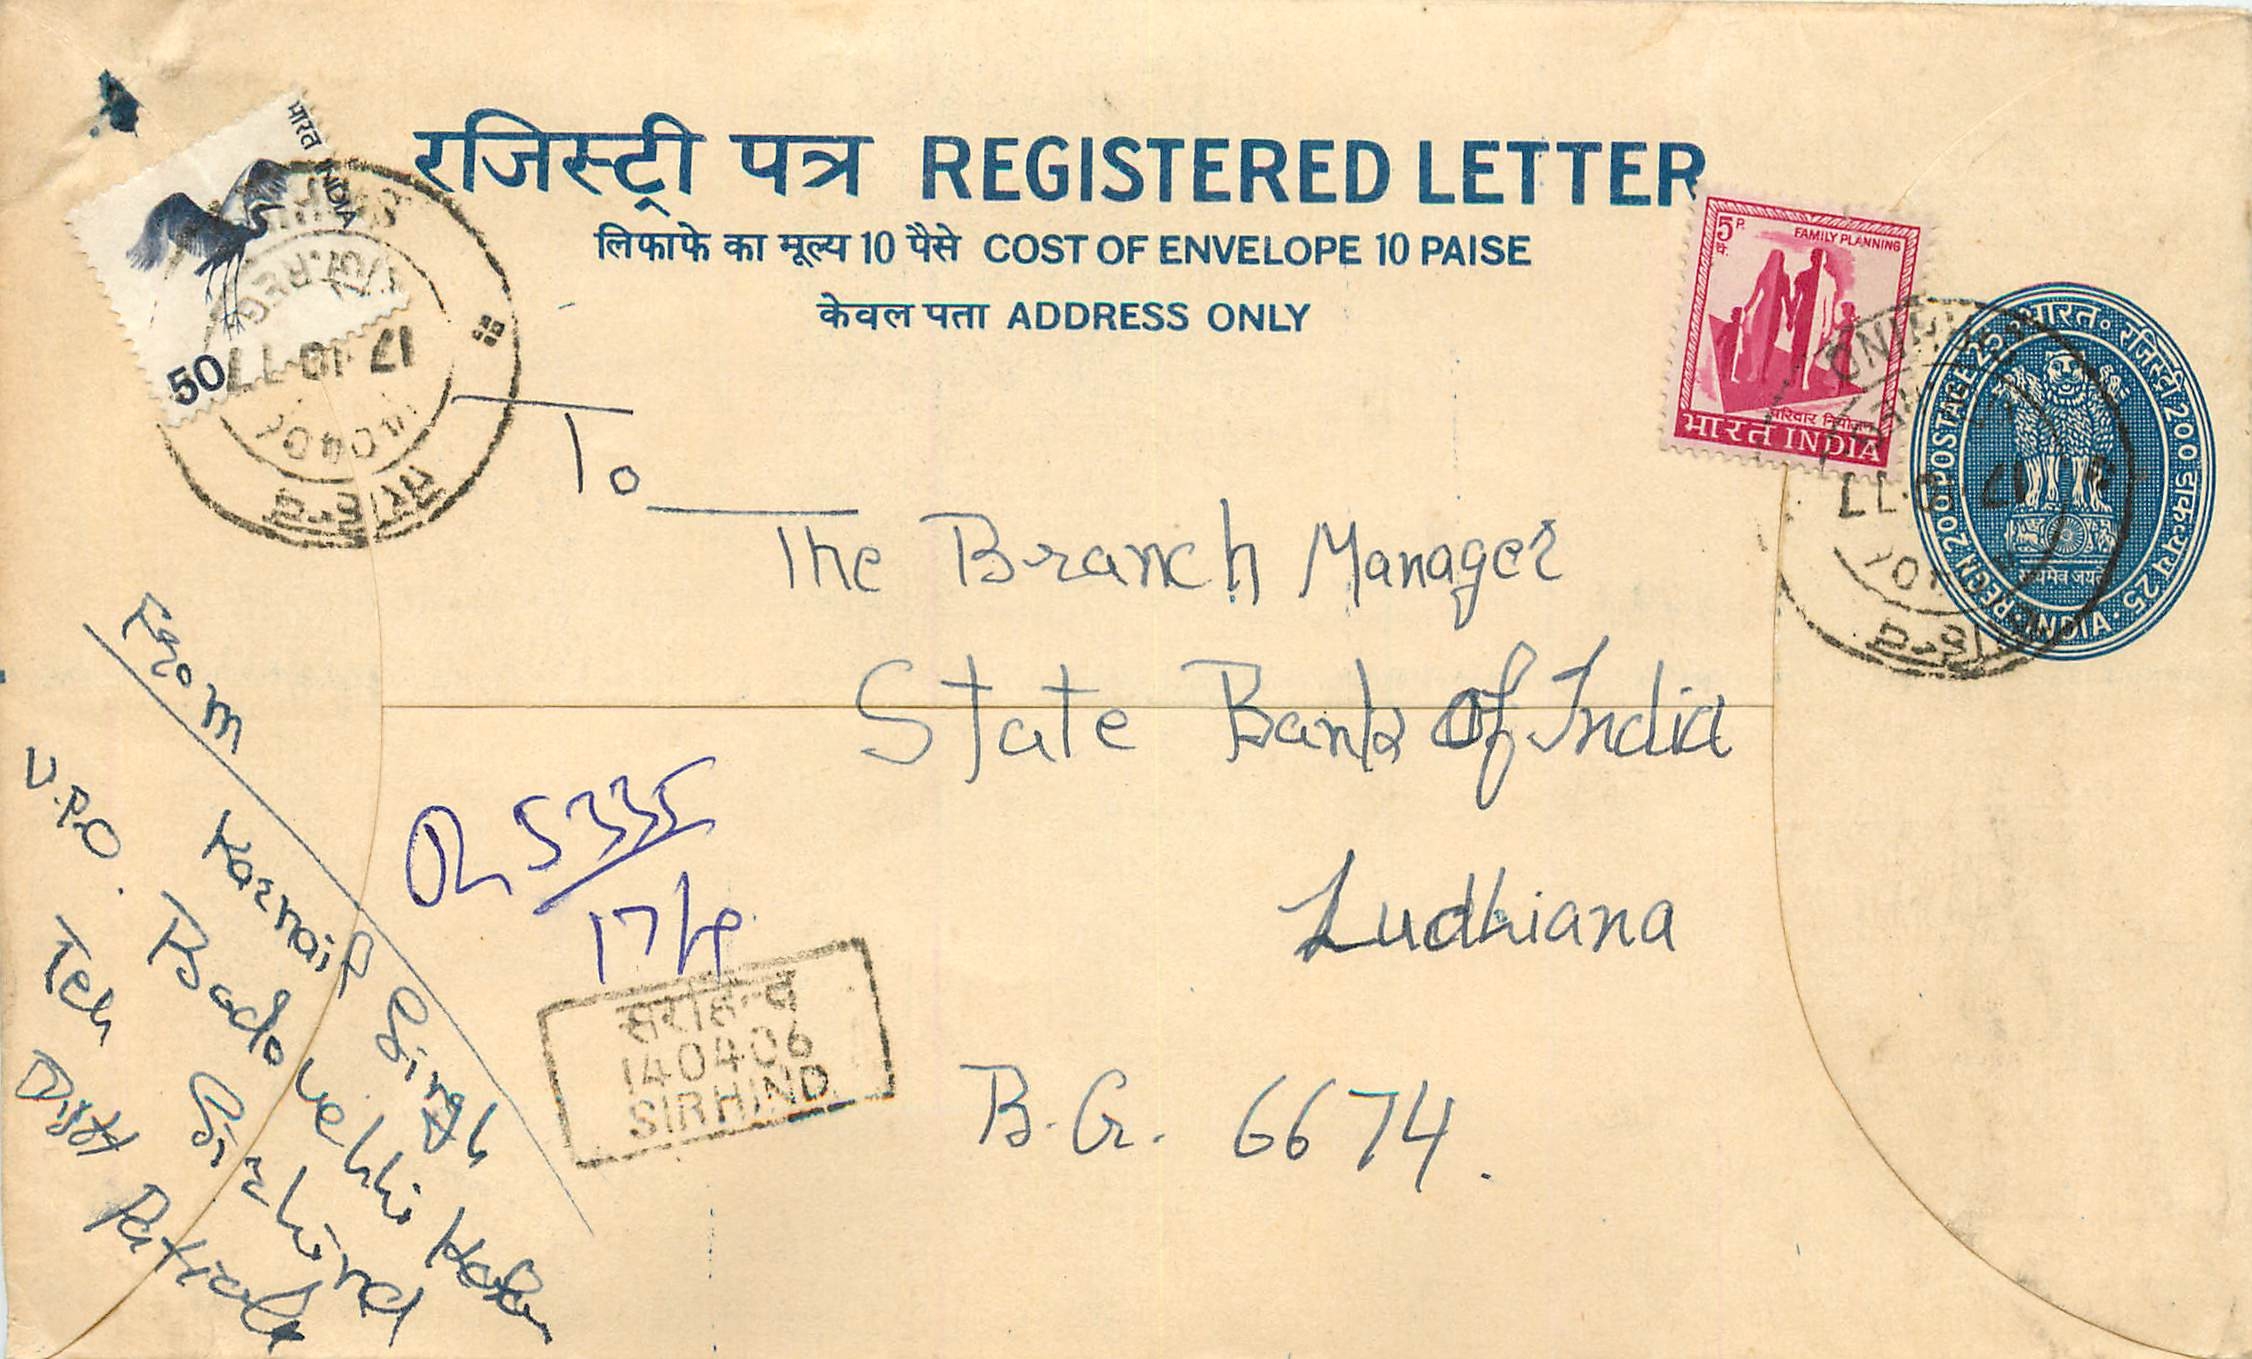 रजिस्ट्री पत्र REGISTERED LETTER
लिफाफे का मूल्य 10 पैसे COST OF ENVELOPE 10 PAISE
केवल पता ADDRESS ONLY
भारत INDIA
50
17·10·77
सरहिन्द
5 P.
FAMILY PLANNING
परिवार नियोजन
भारत INDIA
भारत · रजिस्ट्री 200 डाक व्यय 25 ·
INDIA · REGN 200 POSTAGE 25
To
The Branch Manager
State Bank Of India
Ludhiana
B.G. 6674.
From
Karnail Singh
V.P.O.
Teh Sirhind
Distt Patiala
5335
सरहिन्द
140406
SIRHIND